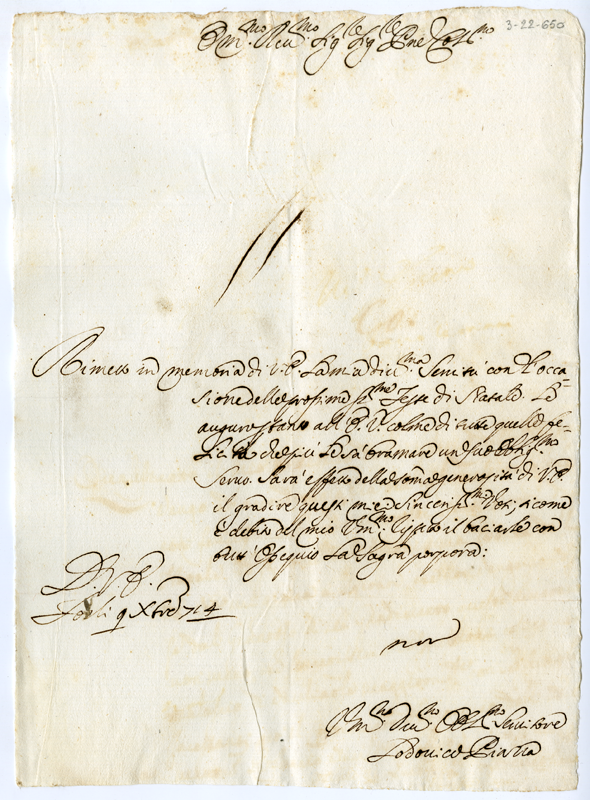 3-22-650
Em.mo Rev.mo Sig.re Sig.re P.ne Col.mo
Rimetto in memoria di V.E. la mia div.ma Servitù con l'occa=
sione delle prossime S.me Feste di Natale. Le
auguro stanto all' E.V. colme di tutte quelle fe-
licità che più le sà bramare un suo Obblig.mo
Servo. Sarà effetto della somma generosità di V.E.
il gradire questi miei sinceris.mi Voti, sicome
è debito del mio Um.mo il baciarle con
tutt' Ossequio la Sagra porpora:
D. V. E.
Forlì 9 Xbre 714
Um.mo Div.mo Obbl.mo Servitore
Lodovico